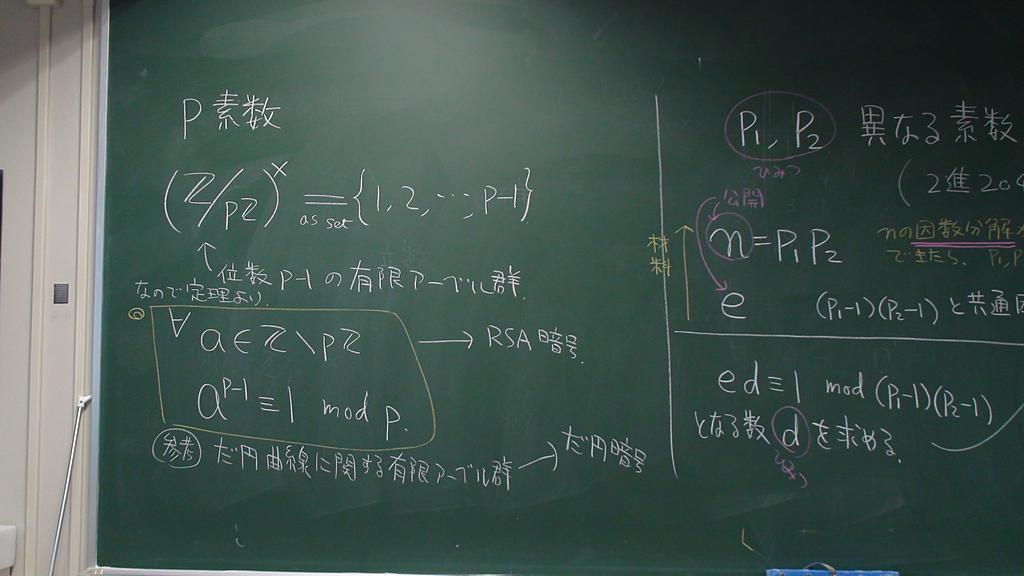 p 素数
(Z/pZ)^× = {1, 2, …, p-1}
as set
↑ 位数 p-1 の有限アーベル群.
なので定理より.
∀ a ∈ Z \ pZ → RSA暗号.
a^{p-1} ≡ 1 mod p.
参考 だ円曲線に関する有限アーベル群 → だ円暗号
P1, P2 異なる素数
ひみつ
(2進20
公開
n = P1 P2
nの因数分解
できたら、P1, P
材料
e (P1-1)(P2-1) と共通因
ed ≡ 1 mod (P1-1)(P2-1)
となる数 d を求める.
ひみつ